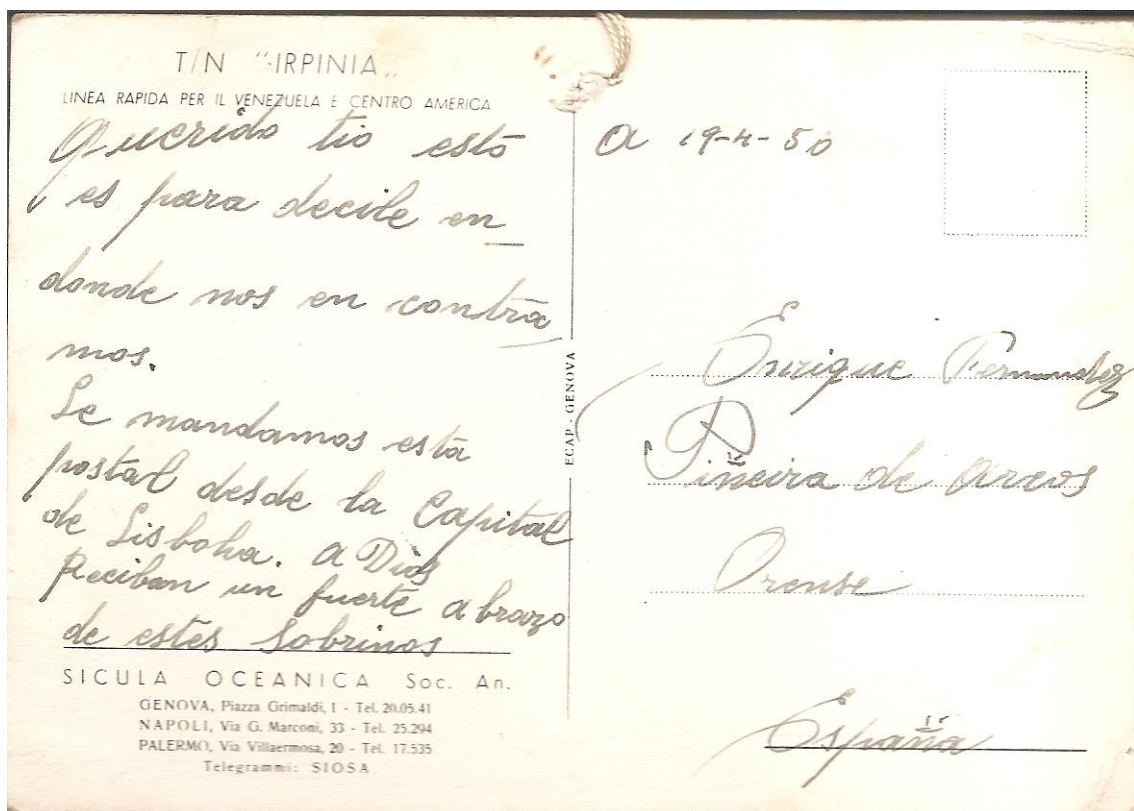 T/N "IRPINIA"
LINEA RAPIDA PER IL VENEZUELA E CENTRO AMERICA
Querido tio esto
es para decile en
donde nos en contra
mos.
Le mandamos esta
postal desde la Capital
de Lisboha. a Dios
Reciban un fuerte abrazo
de estes Sobrinos
SICULA OCEANICA Soc. An.
GENOVA, Piazza Grimaldi, 1 - Tel. 20.05.41
NAPOLI, Via G. Marconi, 33 - Tel. 25.294
PALERMO, Via Villaermosa, 20 - Tel. 17.535
Telegrammi: SIOSA
ECAP - GENOVA
a 19-4-50
Enrique Fernandez
Piñeira de Arcos
Orense
España